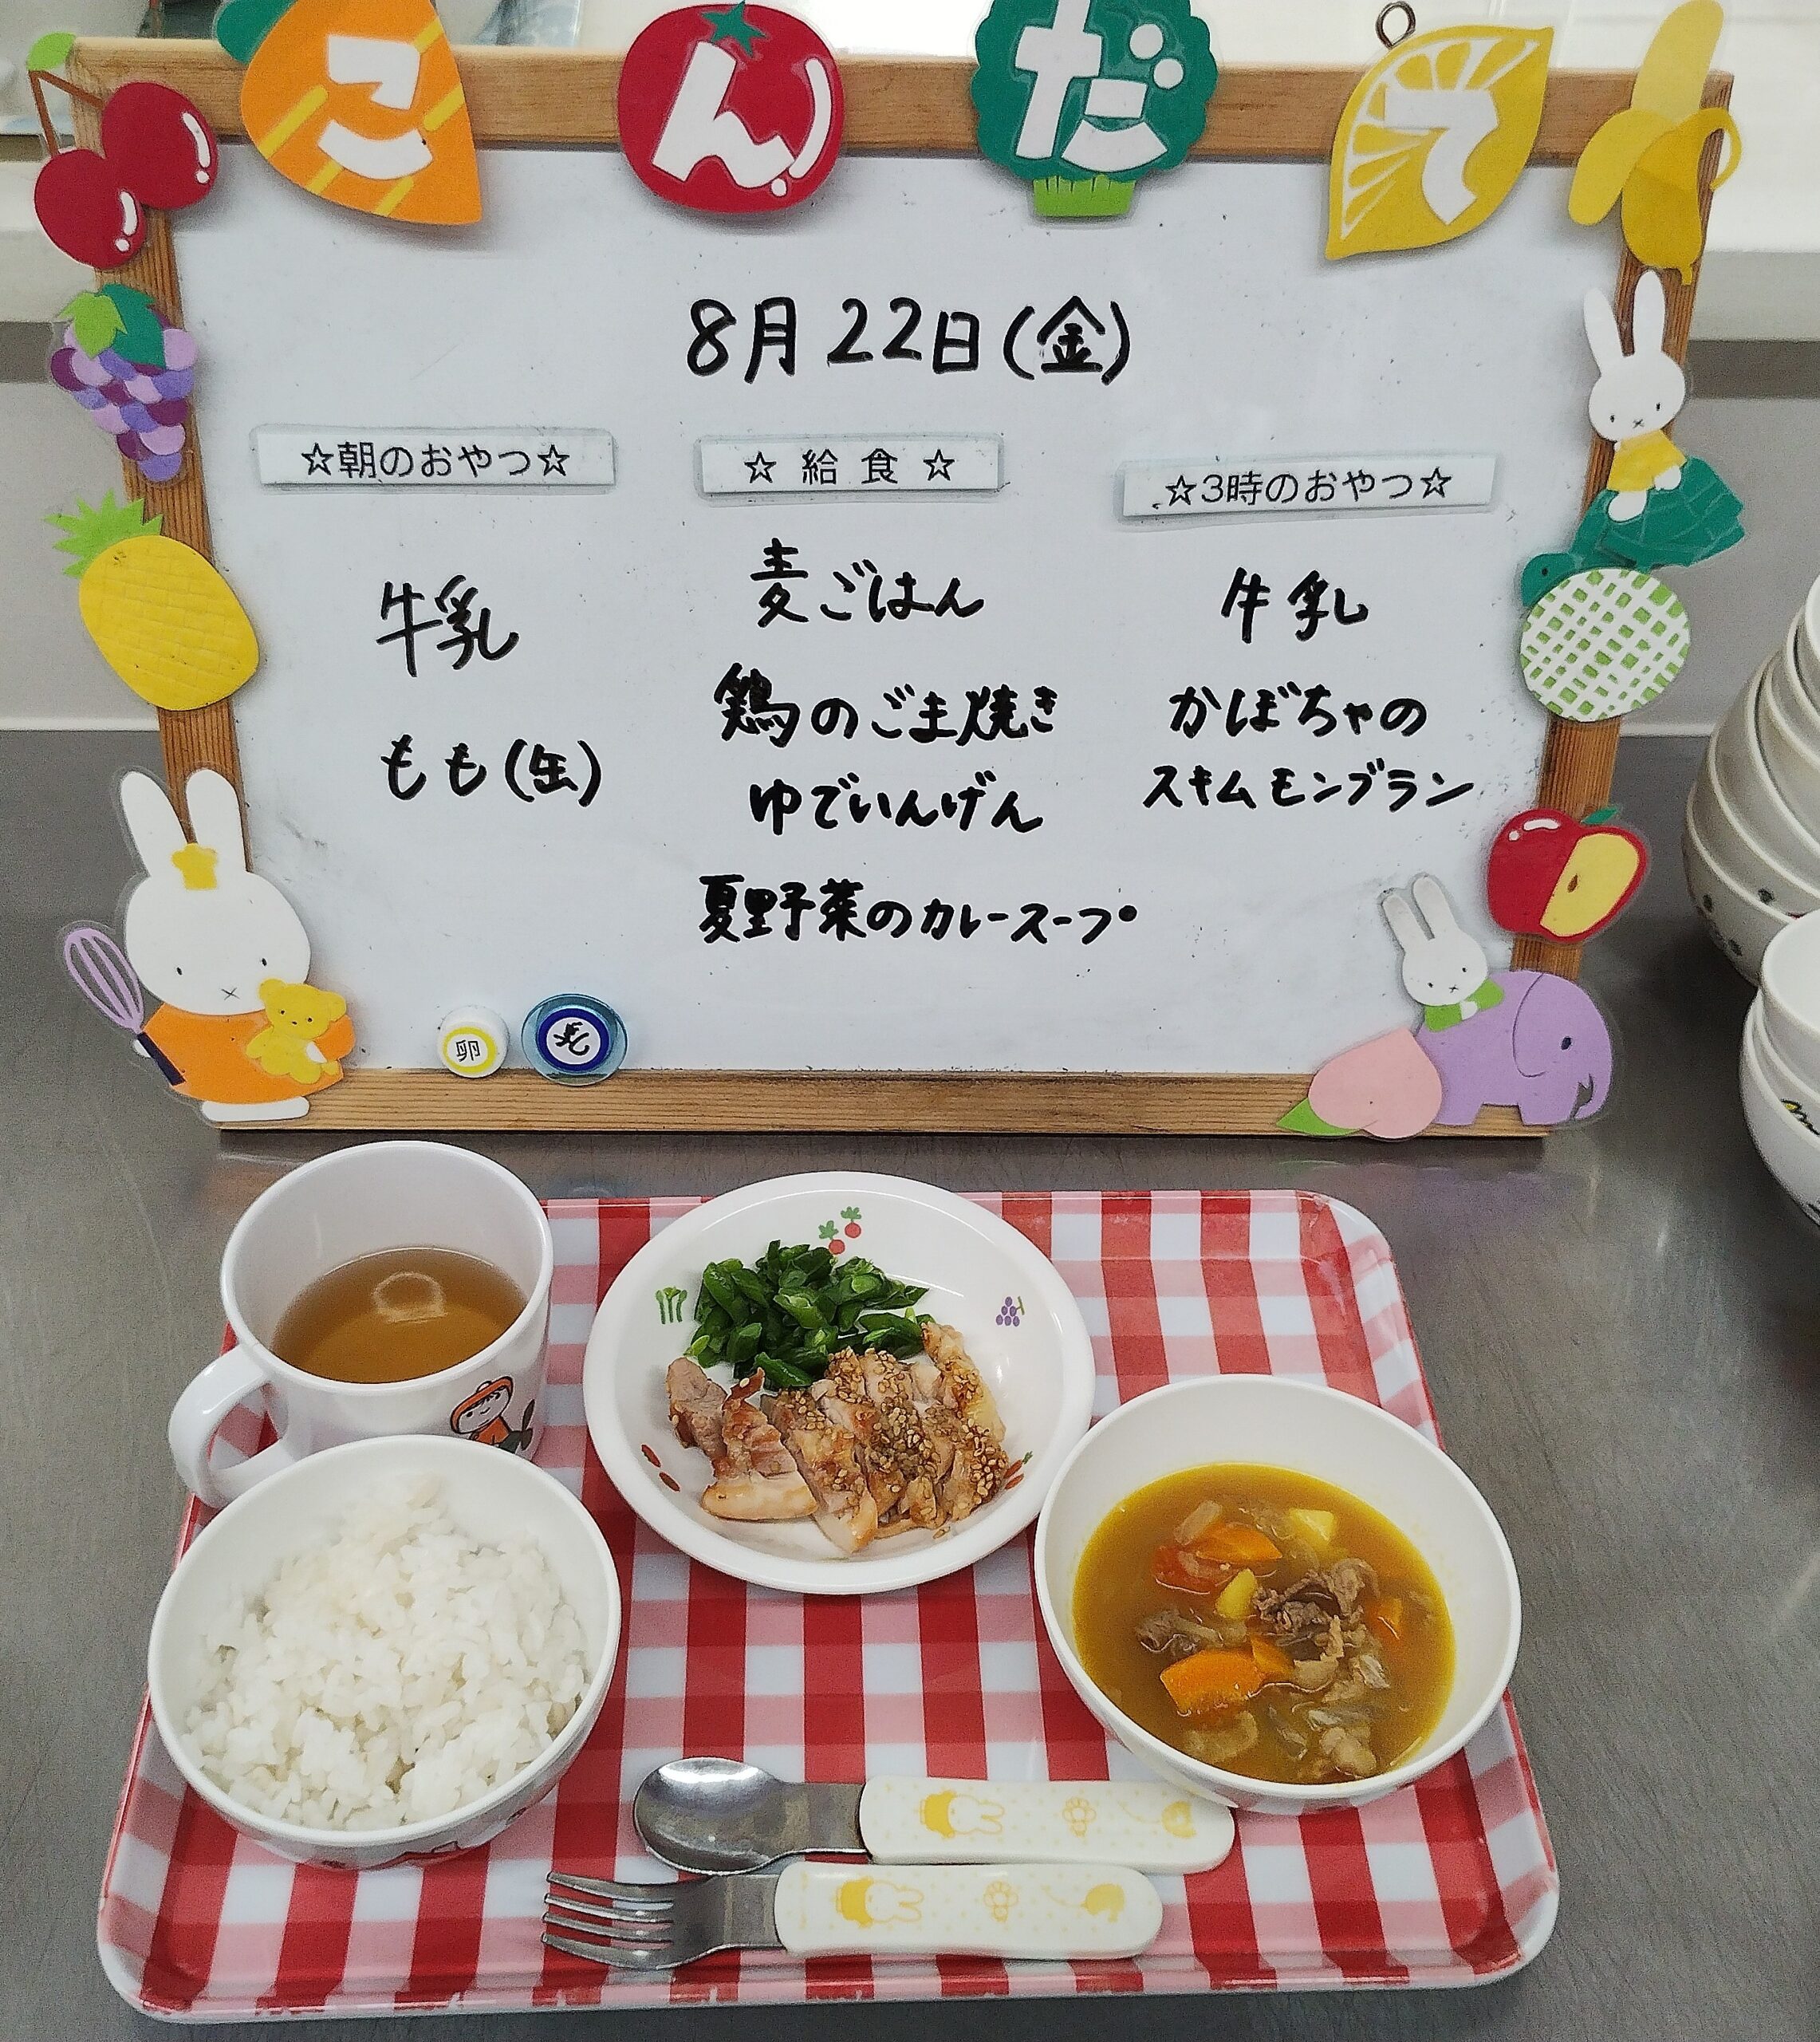 こんだて
8月22日(金)
☆朝のおやつ☆
牛乳
もも(缶)
☆給食☆
麦ごはん
鶏のごま焼き
ゆでいんげん
夏野菜のカレースープ
☆3時のおやつ☆
牛乳
かぼちゃの
スキムモンブラン
卵
乳